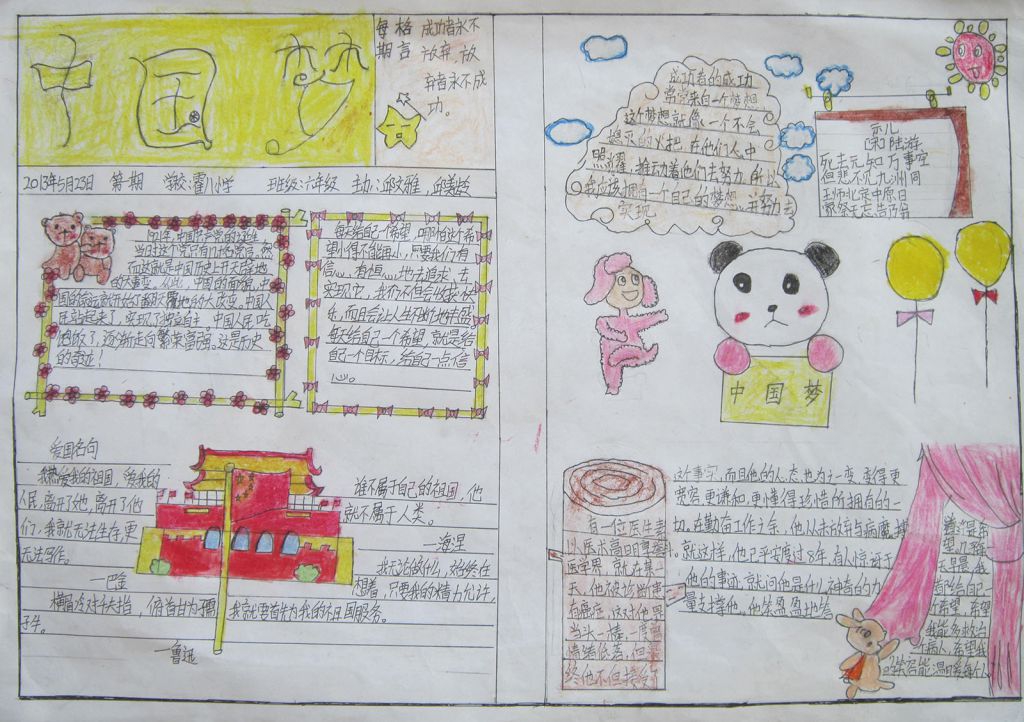 中国梦
每期
格言
成功者永不
放弃,放
弃者永不成
功。
2013年5月23日 第一期 学校:霍小学 班级:六年级 主办:邱文雅,邱美龄
中国共产党的诞生,
民站起来了,实现了独立自主,中国人民吃
饱饭了,逐渐走向繁荣富强。这是历史
的奇迹!
每天给自己一个希望,哪怕这个希
望小得不能再小,只要我们有
信心,有恒心地去追求,去
实现它,我们不但会收获快
乐,而且会让人生不断地升段
每天给自己一个希望,就是给
自己一个目标,给自己一点信
心。
爱国名句
我热爱我的祖国,爱我的
人民,离开了她,离开了他
们,我就无法生存,更
无法写作。
—巴金
横眉冷对千夫指,俯首甘为孺
子牛。
—鲁迅
谁不属于自己的祖国,他
就不属于人类。
—海涅
我无论做什么,始终在
想着,只要我的精力允许,
我就要首先为我的祖国服务。
成功者的成功
常常来自一个梦想
这个梦想就像一个不会
熄灭的火把,在他们人中
照耀,推动着他们去努力,所以
我应该拥自一个自己的梦想,并努力去
实现
示儿
[宋]陆游
死去元知万事空
但悲不见九州同
王师北定中原日
家祭无忘告乃翁
中国梦
有一位医生素
以医术高明享誉
医学界,就在某一
天,他被诊断患
有癌症,这对他男
当头一棒,一度曾
情绪低落,但最
终他不但接受了
这个事实,而且他的人态也为之一变,变得更
宽容,更谦和,更懂得珍惜所拥有的一
切。在勤奋工作之余,他从未放弃与病魔搏
。就这样,他已平安度过8年,有人惊讶于
他的事迹,就问他是什么神奇的力
量去撑他,他笑盈盈地答
道:"是希
望,几乎每
天早晨,我
都给自己一
个希望,希望
我能多救治一
个病人,希望我
的笑容能温暖每个人